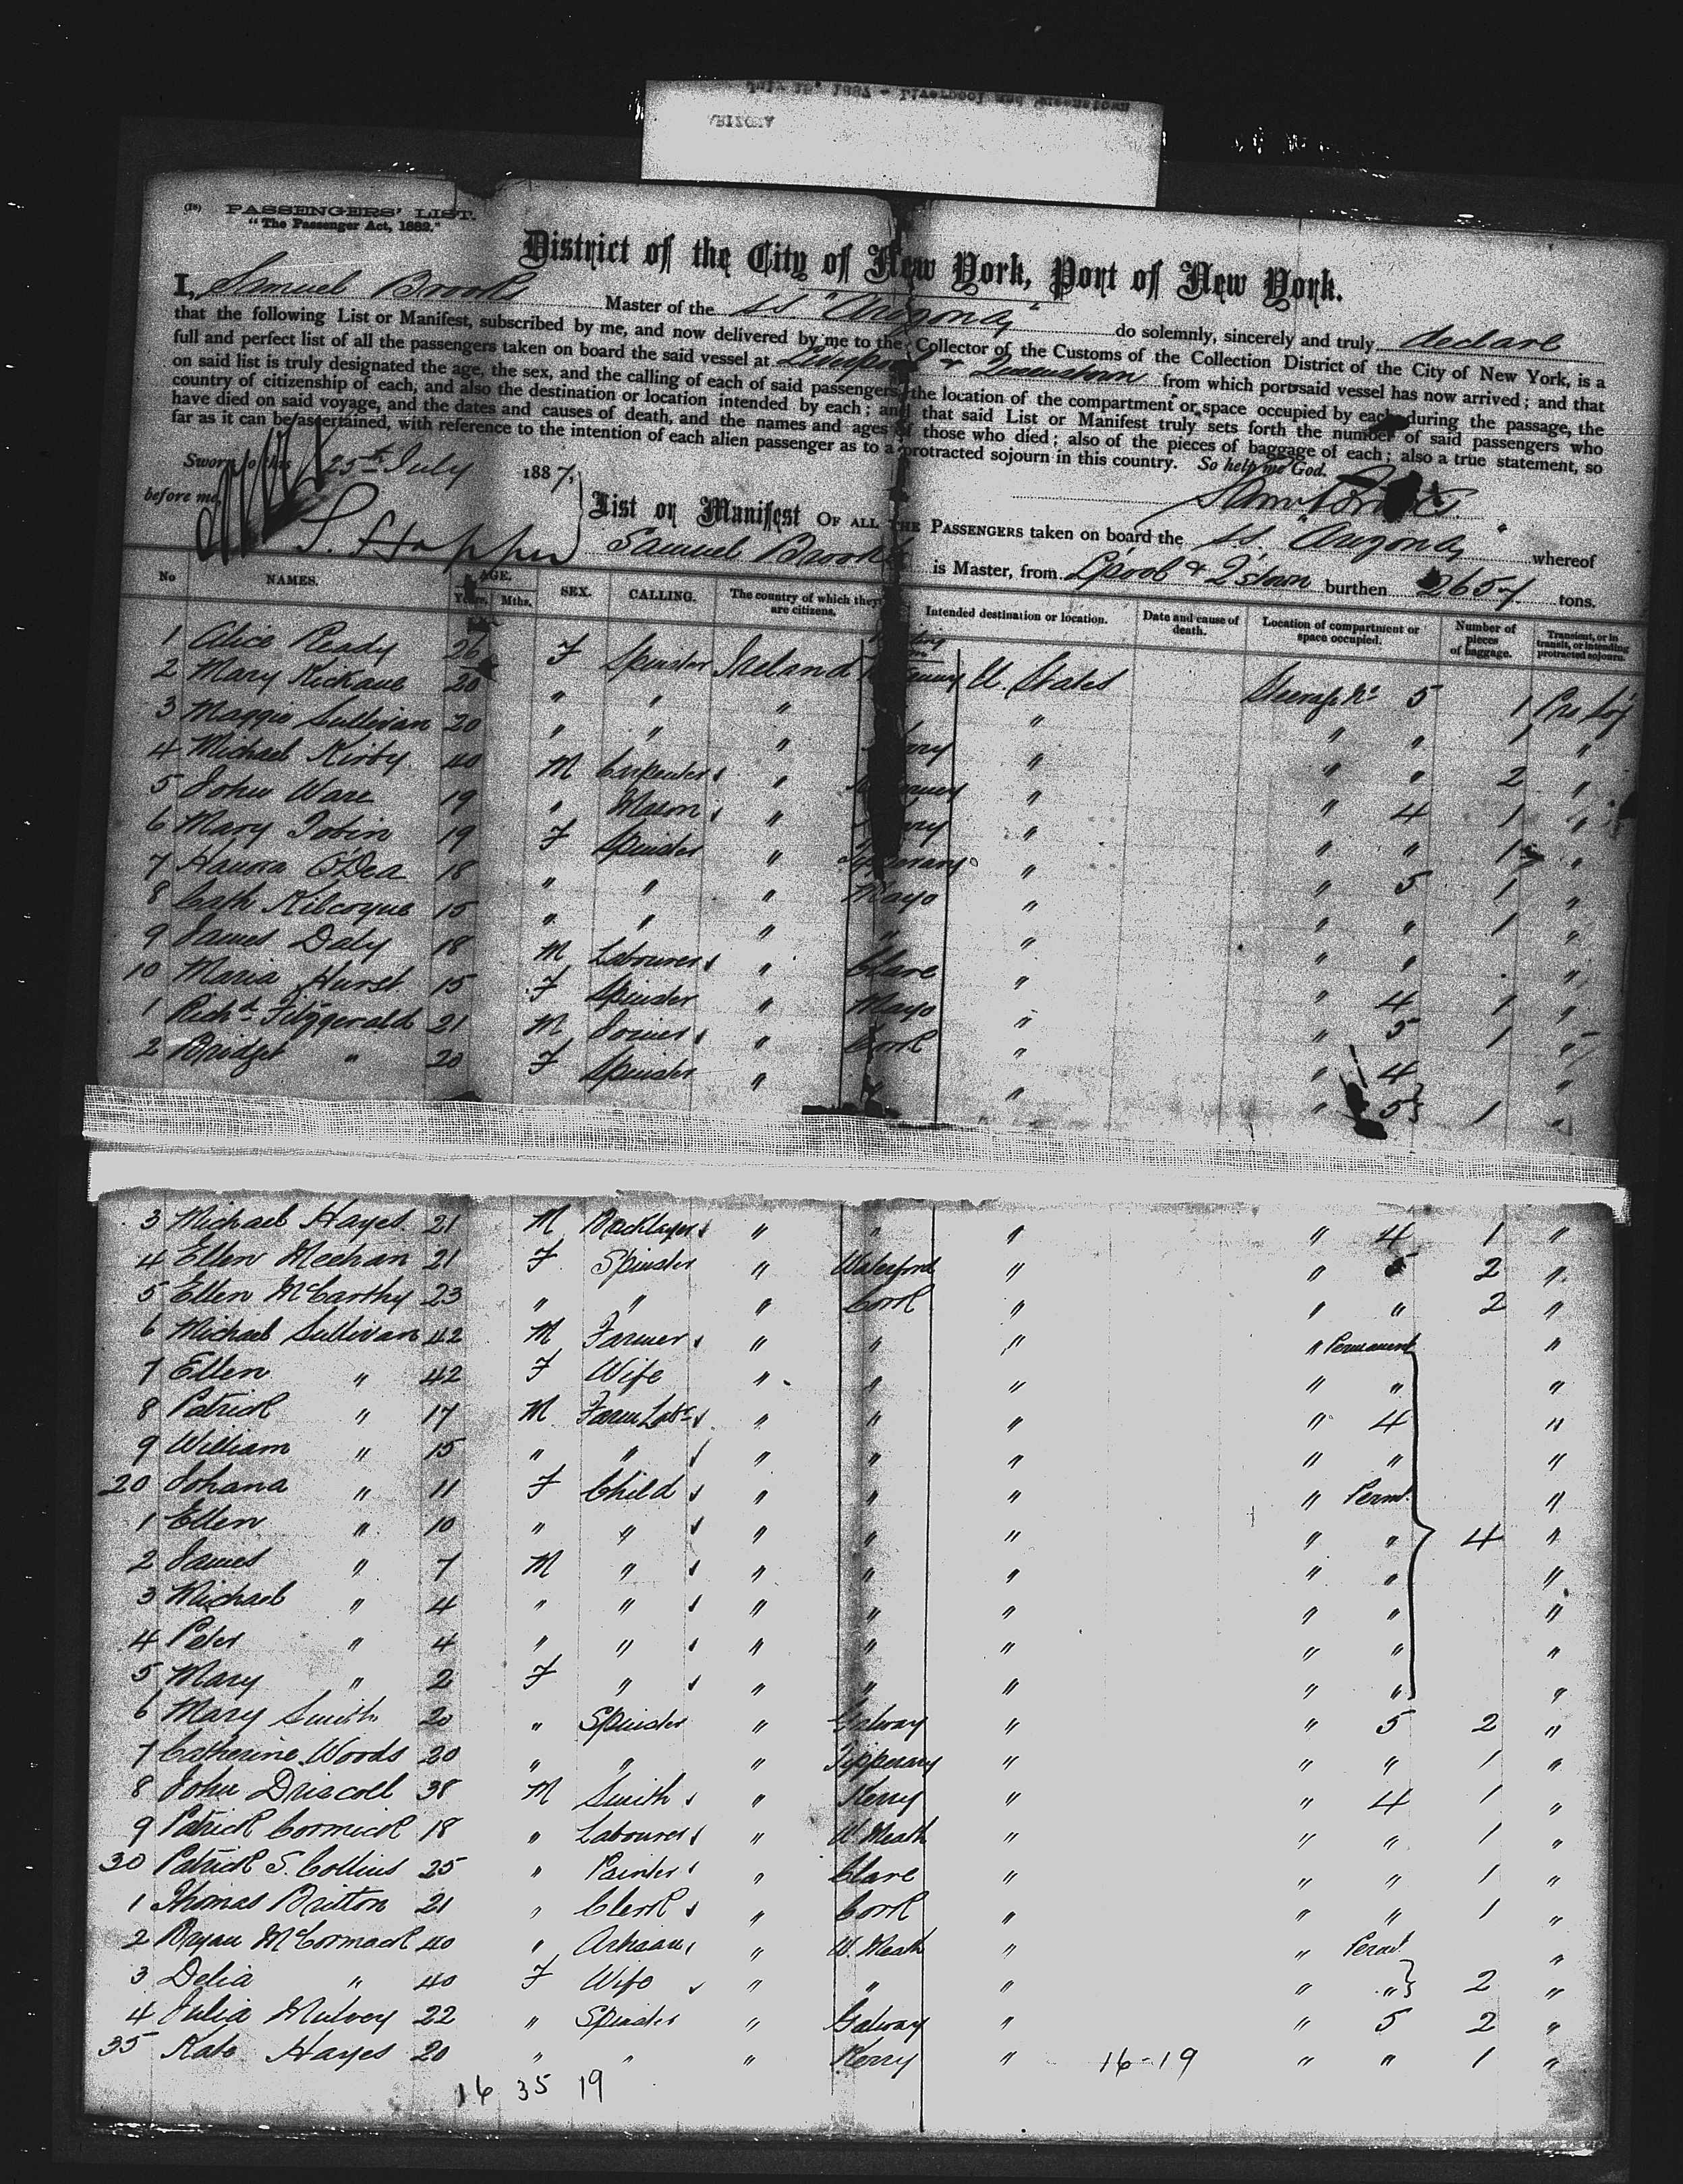 July 25, 1887 - Liverpool and Queenstown
ARIZONA
(18) PASSENGERS' LIST.
"The Passenger Act, 1882."
District of the City of New York, Port of New York.
I, Samuel Brooks Master of the SS "Arizona" do solemnly, sincerely and truly declare
that the following List or Manifest, subscribed by me, and now delivered by me to the Collector of the Customs of the Collection District of the City of New York, is a
full and perfect list of all the passengers taken on board the said vessel at Liverpool & Queenstown from which port said vessel has now arrived; and that
on said list is truly designated the age, the sex, and the calling of each of said passengers, the location of the compartment or space occupied by each during the passage, the
country of citizenship of each, and also the destination or location intended by each; and that said List or Manifest truly sets forth the number of said passengers who
have died on said voyage, and the dates and causes of death, and the names and ages of those who died; also of the pieces of baggage of each; also a true statement, so
far as it can be ascertained, with reference to the intention of each alien passenger as to a protracted sojourn in this country. So help me God.
Sworn to this 25th July 1887,
before me
List or Manifest OF ALL THE PASSENGERS taken on board the SS. "Arizona" whereof
Samuel Brooks is Master, from L'pool & Q'stown burthen 2657 tons.
No NAMES. AGE. Years. Mths. SEX. CALLING. The country of which they are citizens. Intended destination or location. Date and cause of death. Location of compartment or space occupied. Number of pieces of baggage. Transient, or in transit, or intending protracted sojourn.
1 Alice Ready 26 F Spinster Ireland U. States 5 1
2 Mary Kickane 20 " " " " " " 1 "
3 Maggie Sullivan 20 " " " " " " 2 "
4 Michael Kirby 40 M Carpenter " " " 4 1 "
5 John Ware 19 " Mason " " " " 1 "
6 Mary Tobin 19 F Spinster " Tipperary " " 5 1 "
7 Hanora O'Dea 18 " " " Mayo " " " 1 "
8 Cath Kilcoyne 15 " " " " " " " "
9 James Daly 18 M Labourer " Clare " " 4 1 "
10 Maria Hurst 15 F Spinster " Mayo " " 5 1 "
1 Richd Fitzgerald 21 M Joiner " Cork " " 4 "
2 Bridget " 20 F Spinster " " " " 5 1 "
3 Michael Hayes 21 M Bricklayer " " " " 4 1 "
4 Ellen Meehan 21 F Spinster " Waterford " " 5 2 "
5 Ellen McCarthy 23 " " " Cork " " " 2 "
6 Michael Sullivan 42 M Farmer " " " " Permanent "
7 Ellen " 42 F Wife " " " " " "
8 Patrick " 17 M Farm Labr " " " " 4 "
9 William " 15 " " " " " " " "
20 Johana " 11 F Child " " " " Permt. "
1 Ellen " 10 " " " " " " " 4 "
2 James " 7 M " " " " " " "
3 Michael " 4 " " " " " " " "
4 Peter " 4 " " " " " " " "
5 Mary " 2 F " " " " " " "
6 Mary Smith 20 " Spinster " Galway " " 5 2 "
7 Catherine Woods 20 " " " Tipperary " " " 1 "
8 John Driscoll 38 M Smith " Kerry " " 4 1 "
9 Patrick Cormick 18 " Labourer " W. Meath " " " 1 "
30 Patrick S. Collins 25 " Painter " Clare " " " 1 "
1 Thomas Britton 21 " Clerk " Cork " " " 1 "
2 Bryan McCormack 40 " Artisan " W. Meath " " "
3 Delia " 40 F Wife " " " " " 2 "
4 Julia Mulvey 22 " Spinster " Galway " " 5 2 "
35 Kate Hayes 20 " " " Kerry " 16-19 " " 1 "
16 35 19